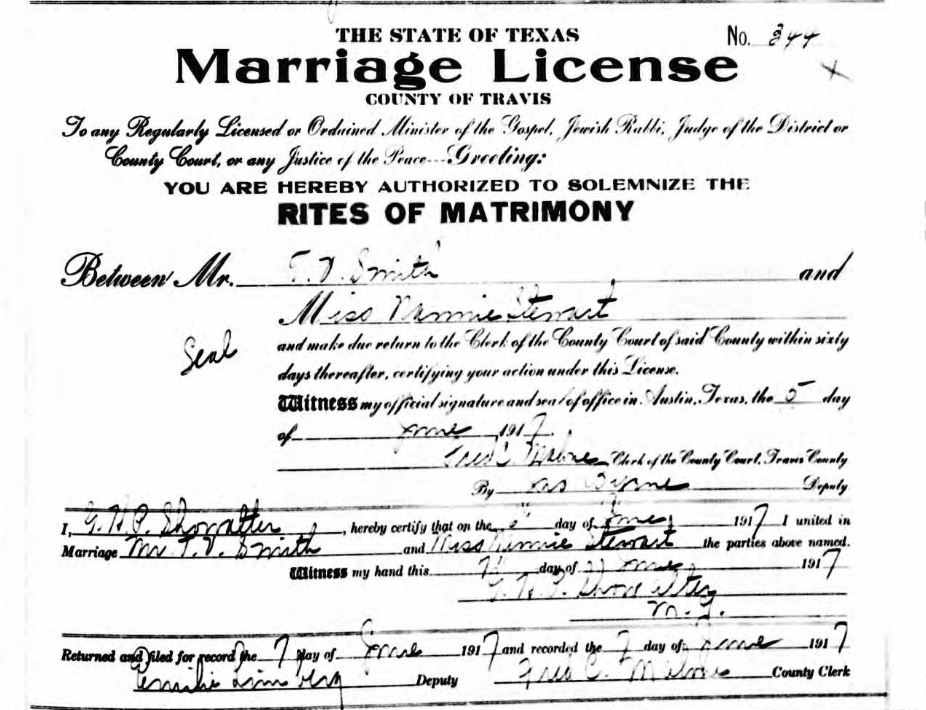 THE STATE OF TEXAS
No. 344
Marriage License
COUNTY OF TRAVIS
To any Regularly Licensed or Ordained Minister of the Gospel, Jewish Rabbi, Judge of the District or
County Court, or any Justice of the Peace---Greeting:
YOU ARE HEREBY AUTHORIZED TO SOLEMNIZE THE
RITES OF MATRIMONY
Between Mr. T. V. Smith and
Miss Nannie Stewart
Seal
and make due return to the Clerk of the County Court of said County within sixty
days thereafter, certifying your action under this License.
Witness my official signature and seal of office in Austin, Texas, the 5 day
of June, 1917.
Fred C. Malone Clerk of the County Court, Travis County
By Jas Byrne Deputy
I, G. H. P. Showalter, hereby certify that on the 5 day of June 1917 I united in
Marriage Mr. T. V. Smith and Miss Nannie Stewart the parties above named.
Witness my hand this 7 day of June 1917
G. H. P. Showalter
M. G.
Returned and filed for record the 7 day of June 1917 and recorded the 7 day of June 1917
Emilie Limberg Deputy Fred C. Malone County Clerk